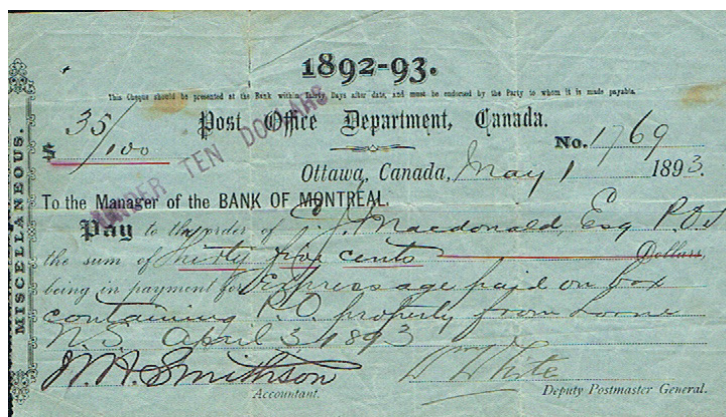 1892-93.
This Cheque should be presented at the Bank within Thirty Days after date, and must be endorsed by the Party to whom it is made payable.
$ 35/100
Post Office Department, Canada.
UNDER TEN DOLLARS
No. 1769
Ottawa, Canada, May 1 1893.
To the Manager of the BANK OF MONTREAL.
Pay to the order of J. Macdonald, Esq P.O.
the sum of thirty five cents Dollars,
being in payment for Expressage paid on box
containing P.O. property from Lorne
N.S. April 3 1893
W.H. Smithson
Accountant.
Wm White
Deputy Postmaster General.
MISCELLANEOUS.